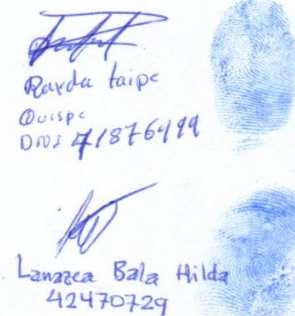 Rayda taipe
Quispe
DNI 41876499
Lanazca Bala Hilda
42470729